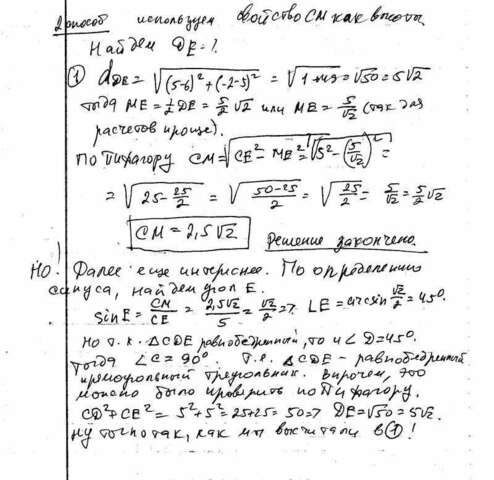 2 способ используем свойство CM как высоты.
Найдем DE = ?
① d_DE = √((5-6)² + (-2-5)²) = √(1+49) = √50 = 5√2
тогда ME = 1/2 DE = 5/2 √2 или ME = 5/√2 (так для
расчетов проще).
По Пифагору CM = √(CE² - ME²) = √(5² - (5/√2)²) =
= √(25 - 25/2) = √((50-25)/2) = √(25/2) = 5/√2 = 5/2 √2
CM = 2,5√2
Решение закончено.
Но! Далее еще интереснее. По определению
синуса, найдем угол E.
sin E = CM/CE = 2,5√2/5 = √2/2 => ∠E = arcsin √2/2 = 45°.
Но т.к. △CDE равнобедренный, то и ∠D = 45°.
Тогда ∠C = 90°. Т.е. △CDE - равнобедренный
прямоугольный треугольник. Впрочем, это
можно было проверить по Пифагору.
CD² + CE² = 5² + 5² = 25 + 25 = 50 => DE = √50 = 5√2.
Ну точно так, как мы высчитали в ①!